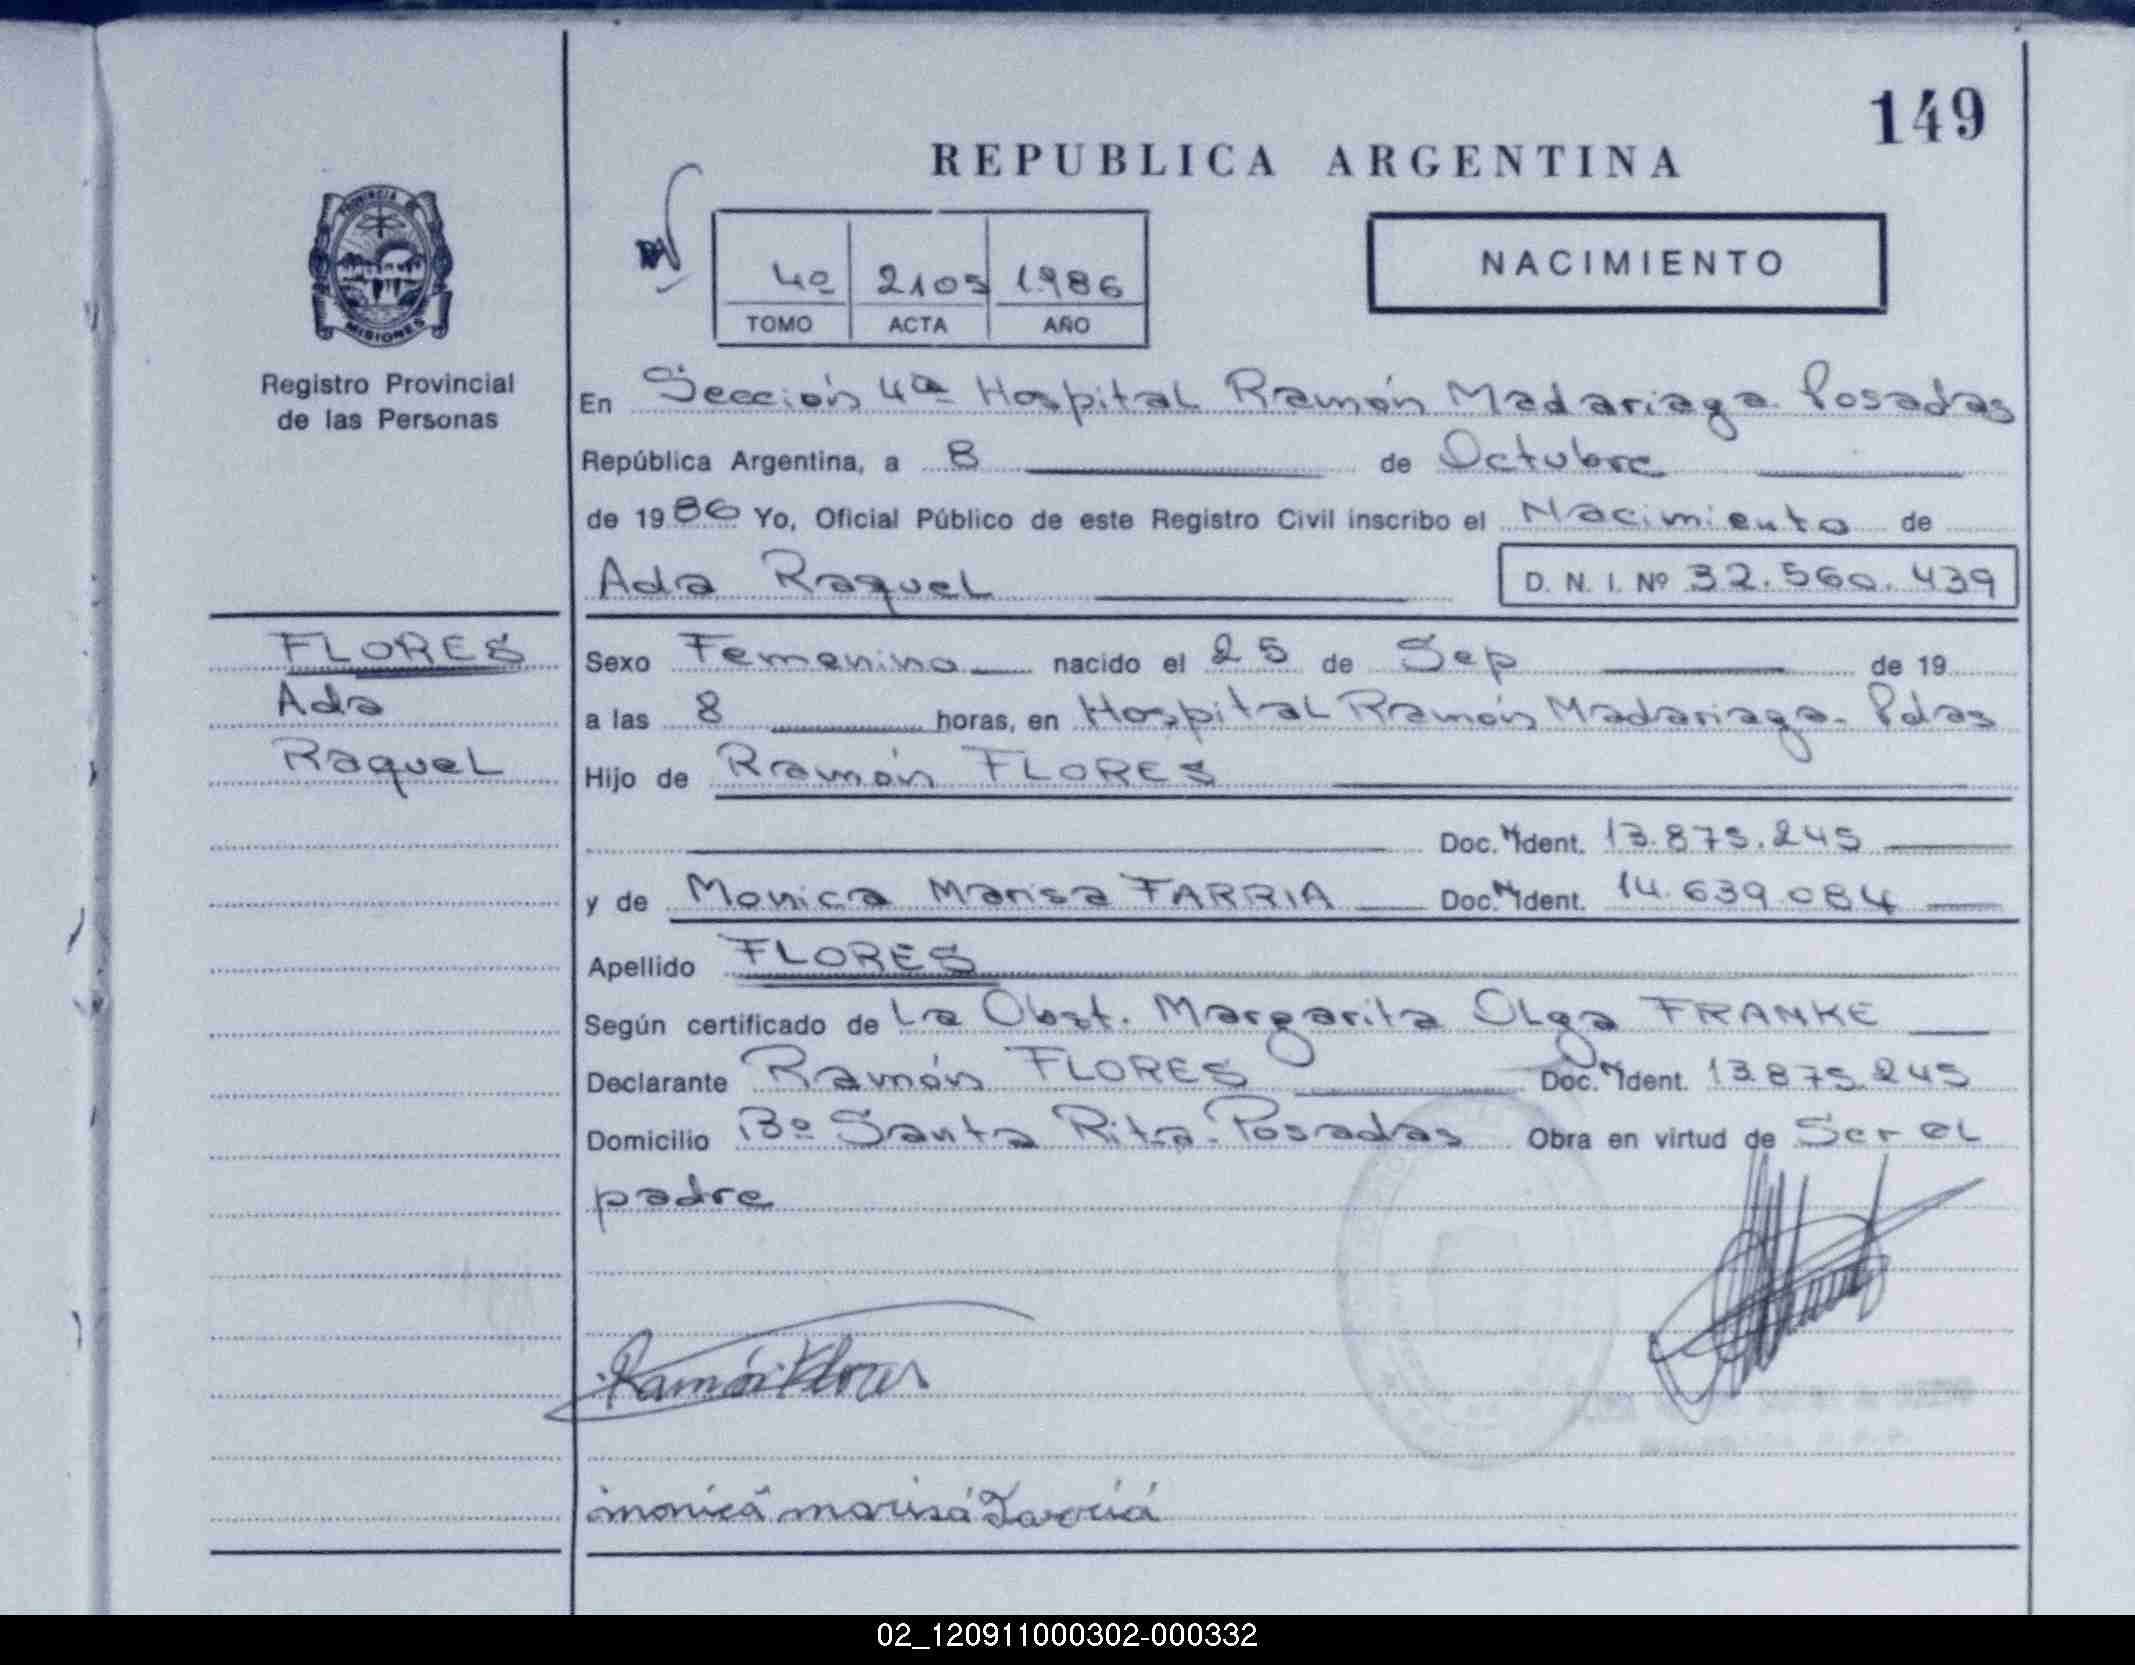 149
REPUBLICA ARGENTINA
PROVINCIA DE
MISIONES
4º 2105 1986
TOMO ACTA AÑO
NACIMIENTO
Registro Provincial
de las Personas
En Sección 4ª Hospital Ramón Madariaga Posadas
República Argentina, a 8 de Octubre
de 1986 Yo, Oficial Público de este Registro Civil inscribo el Nacimiento de
Ada Raquel D. N. I. Nº 32.560.439
FLORES
Ada
Raquel
Sexo Femenino nacido el 25 de Sep de 19
a las 8 horas, en Hospital Ramón Madariaga- Pdas
Hijo de Ramón FLORES
Doc. N Ident. 13.875.245
y de Monica Marisa FARRIA Doc. N Ident. 14.639.084
Apellido FLORES
Según certificado de La Obst. Margarita Olga FRANKE
Declarante Ramón FLORES Doc. N Ident. 13.875.245
Domicilio Bº Santa Rita- Posadas Obra en virtud de Ser el
padre
Ramón Flores
monica marisa Farria
02_120911000302-000332